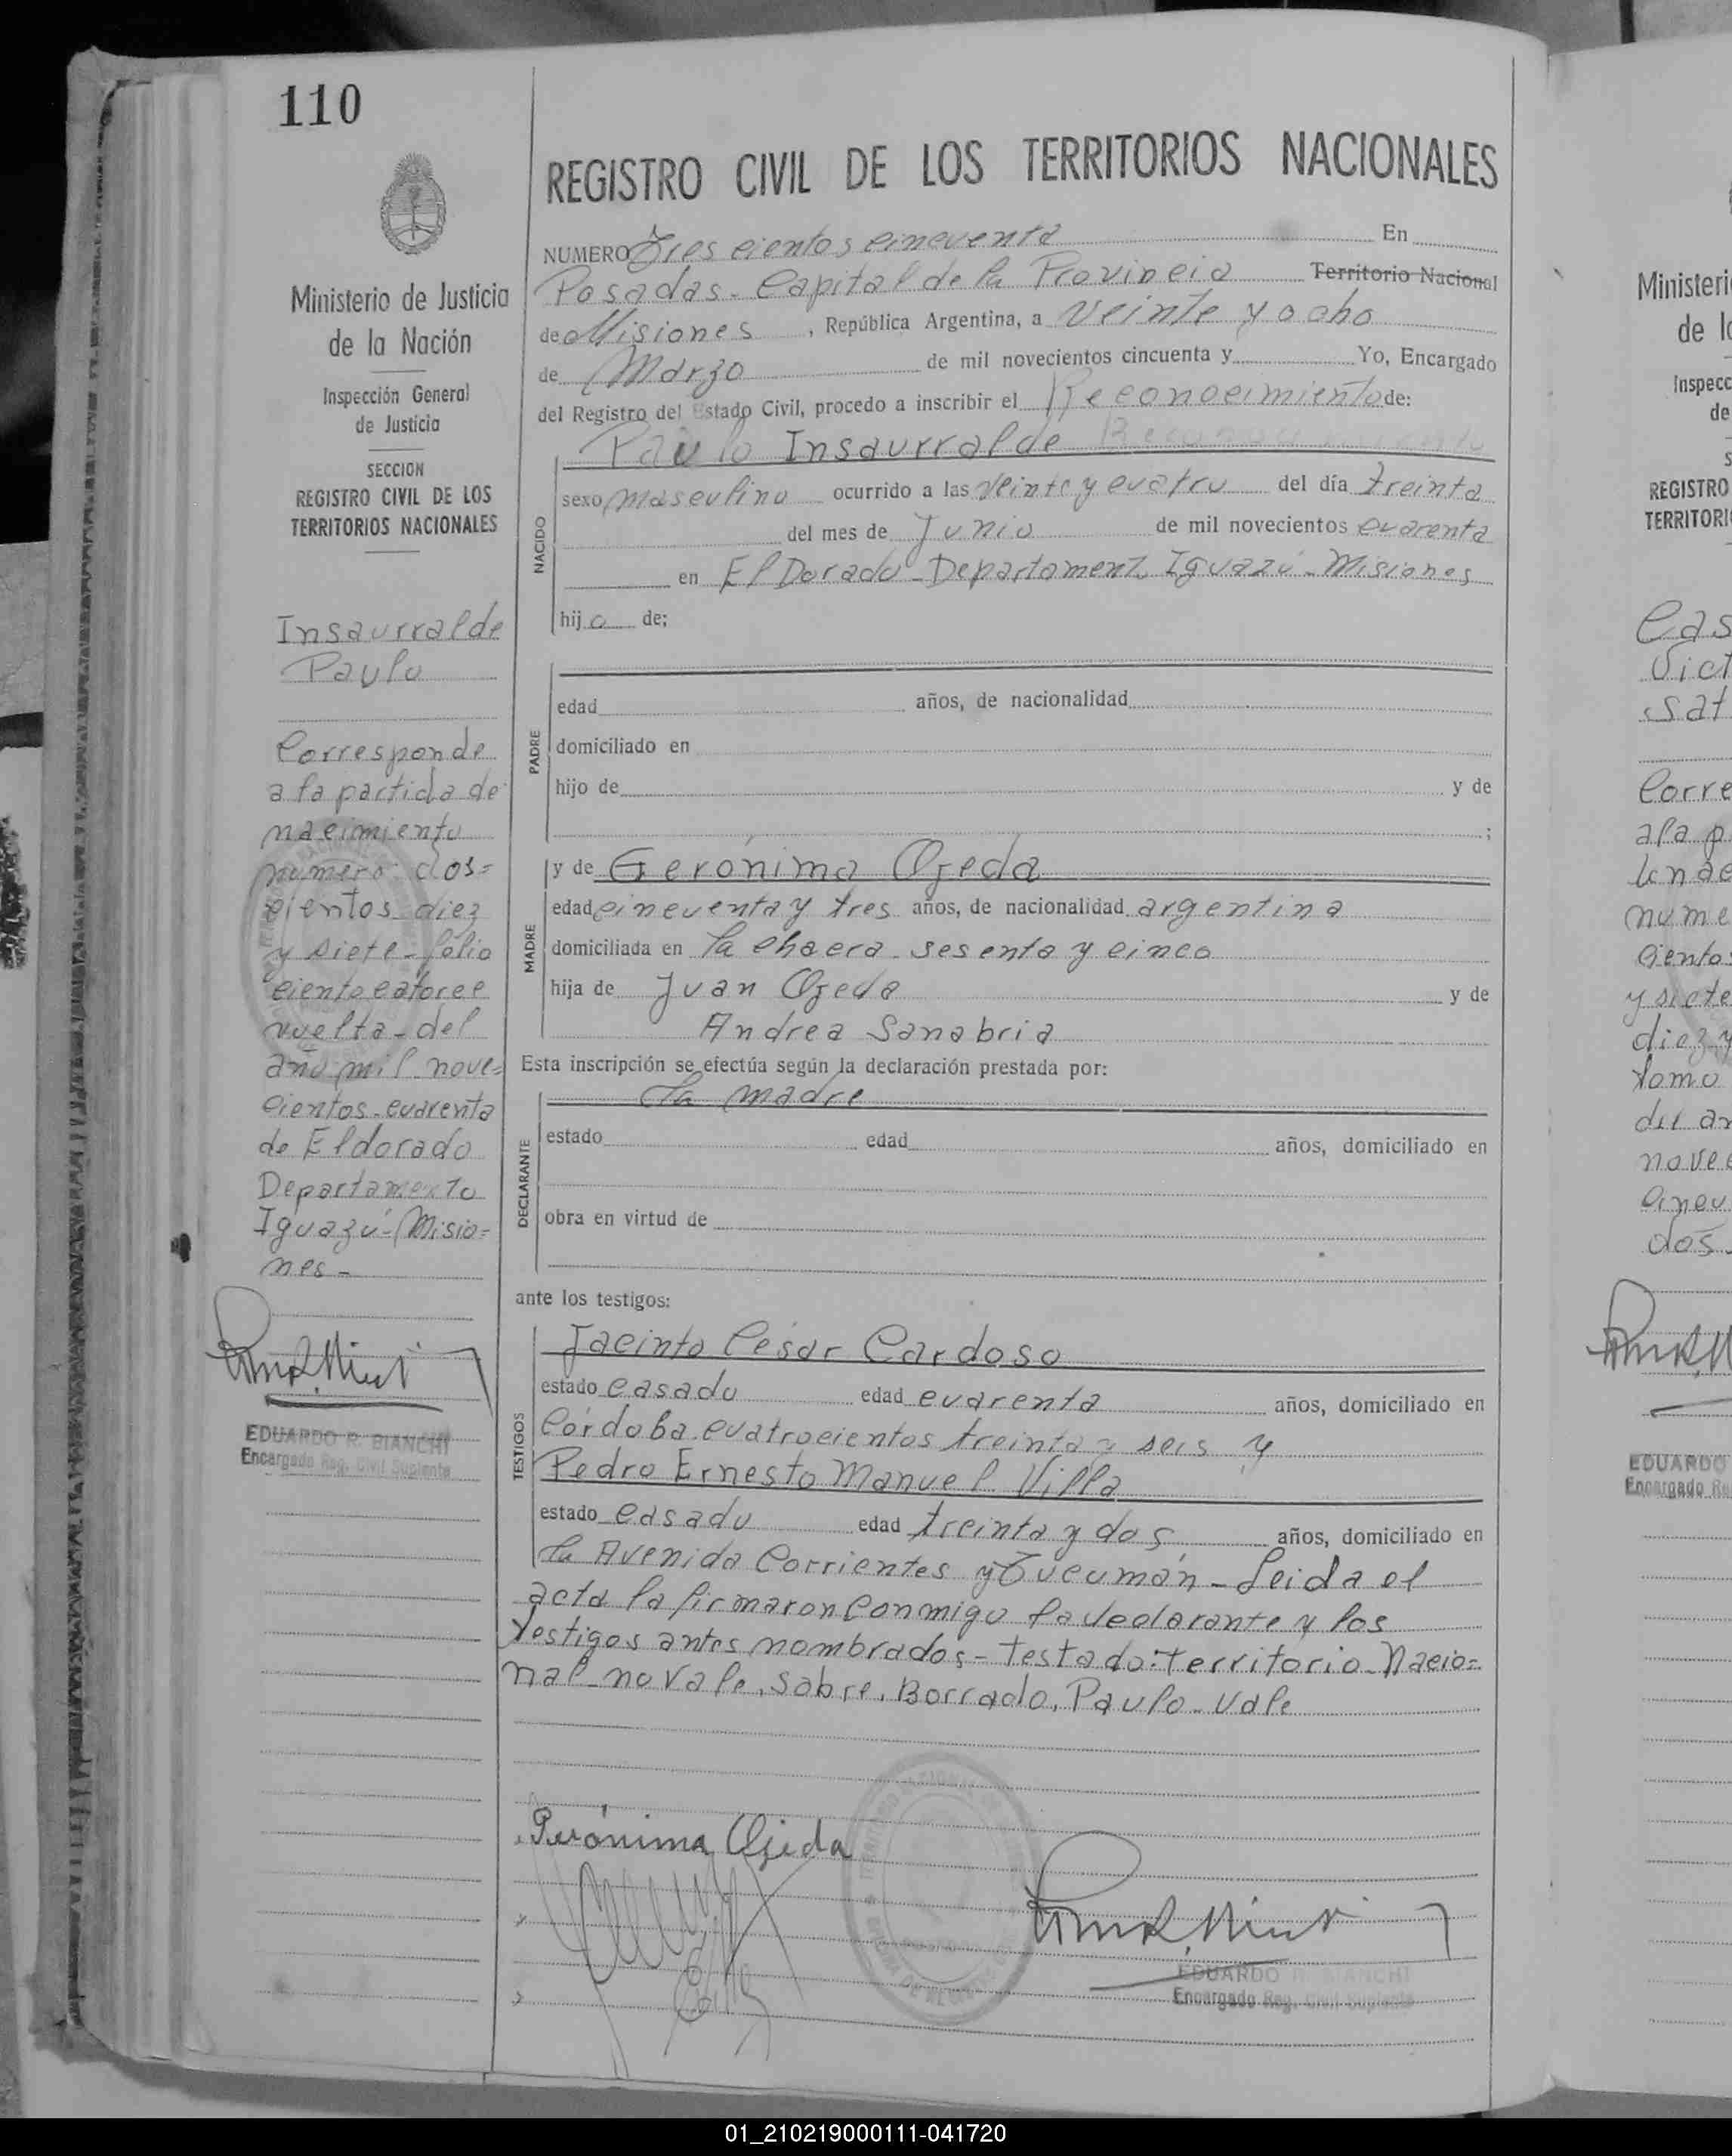 110
REGISTRO CIVIL DE LOS TERRITORIOS NACIONALES
Ministerio de Justicia
de la Nación
Inspección General
de Justicia
SECCION
REGISTRO CIVIL DE LOS
TERRITORIOS NACIONALES
Insaurralde
Paulo
Corresponde
a la partida de
nacimiento
número dos=
cientos diez
y siete - folio
ciento catorce
vuelta - del
año mil nove=
cientos cuarenta
de Eldorado
Departamento
Iguazú - Misio=
nes -
EDUARDO R. BIANCHI
Encargado Reg. Civil Suplente
NUMERO Trescientos cincuenta En
Posadas - Capital de la Provincia Territorio Nacional
de Misiones , República Argentina, a Veinte y ocho
de Marzo de mil novecientos cincuenta y Yo, Encargado
del Registro del Estado Civil, procedo a inscribir el Reconocimiento de:
Paulo Insaurralde
NACIDO
sexo masculino ocurrido a las veinte y cuatro del día treinta
del mes de Junio de mil novecientos cuarenta
en El Dorado - Departamento Iguazú - Misiones
hijo de:
PADRE
edad años, de nacionalidad
domiciliado en
hijo de y de
;
MADRE
y de Gerónima Ojeda
edad cincuenta y tres años, de nacionalidad argentina
domiciliada en la chacra sesenta y cinco
hija de Juan Ojeda y de
Andrea Sanabria
Esta inscripción se efectúa según la declaración prestada por:
la madre
DECLARANTE
estado edad años, domiciliado en
obra en virtud de
ante los testigos:
TESTIGOS
Jacinto César Cardoso
estado casado edad cuarenta años, domiciliado en
Córdoba cuatrocientos treinta y seis y
Pedro Ernesto Manuel Villa
estado casado edad treinta y dos años, domiciliado en
la Avenida Corrientes y Tucumán - Leida el
acta la firmaron conmigo la declarante y los
testigos antes nombrados - Testado: territorio - Nacio=
nal - no vale. Sobre. Borrado. Paulo - Vale
Gerónima Ojeda
EDUARDO R. BIANCHI
Encargado Reg. Civil Suplente
01_210219000111-041720